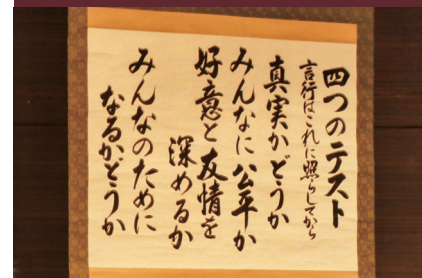 四つのテスト
言行はこれに照らしてから
真実かどうか
みんなに公平か
好意と友情を
深めるか
みんなのために
なるかどうか